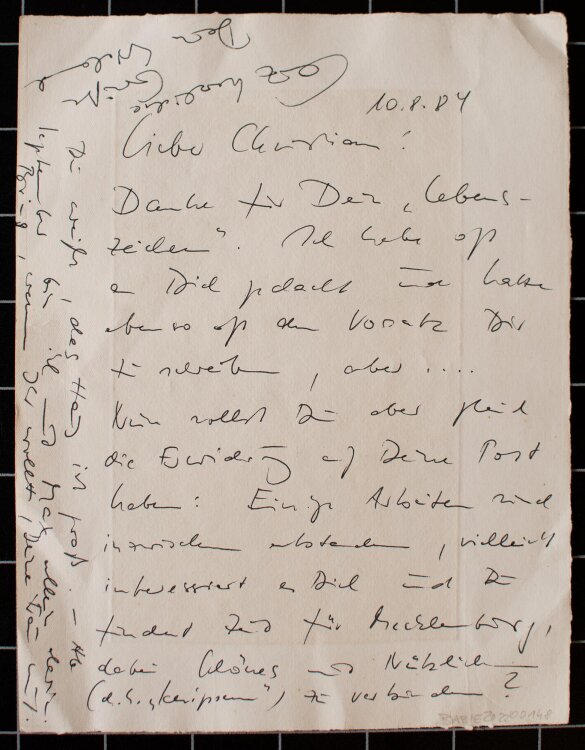 10.8.84
Lieber Christian!
Danke für Dein „Lebens-
zeichen". Ich habe oft
an Dich gedacht und hatte
ebenso oft den Vorsatz Dir
zu schreiben, aber ....
Nun sollst Du aber gleich
die Erwiderung auf Deine Post
haben: Einige Arbeiten sind
inzwischen entstanden, vielleicht
interessiert es Dich und Du
findest Zeit für Mecklenburg,
dabei Schönes und Nützliches
(d.h. „ ") zu verbinden?
Du weißt, das Haus ist groß. – Ab
September bin ich und Max allein darin.
Bring, wenn Ihr wollt, Deine Frau mit.
Herzliche
Grüße
Dein